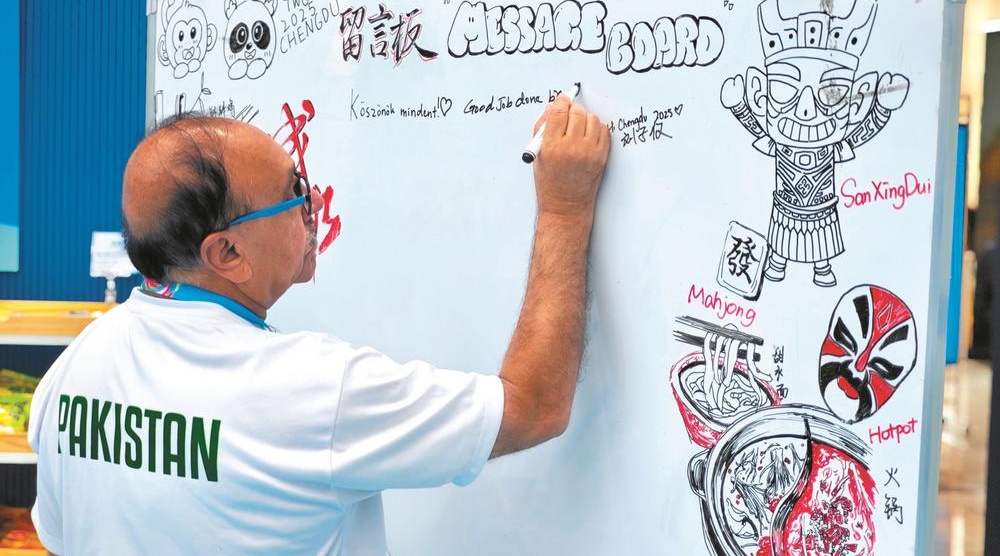 TWG
2025
CHENGDU
留言板 "MESSAGE BOARD"
Köszönök mindent!♡
Good Job done b
Chengdu 2025♡
SanXingDui
發
Mahjong
Hotpot
火锅
PAKISTAN